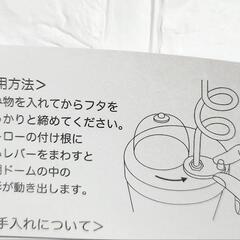 用方法＞
物を入れてからフタを
っかりと締めてください。
ローの付け根に
レバーをまわすと
ドームの中の
が動き出します。
手入れについて＞